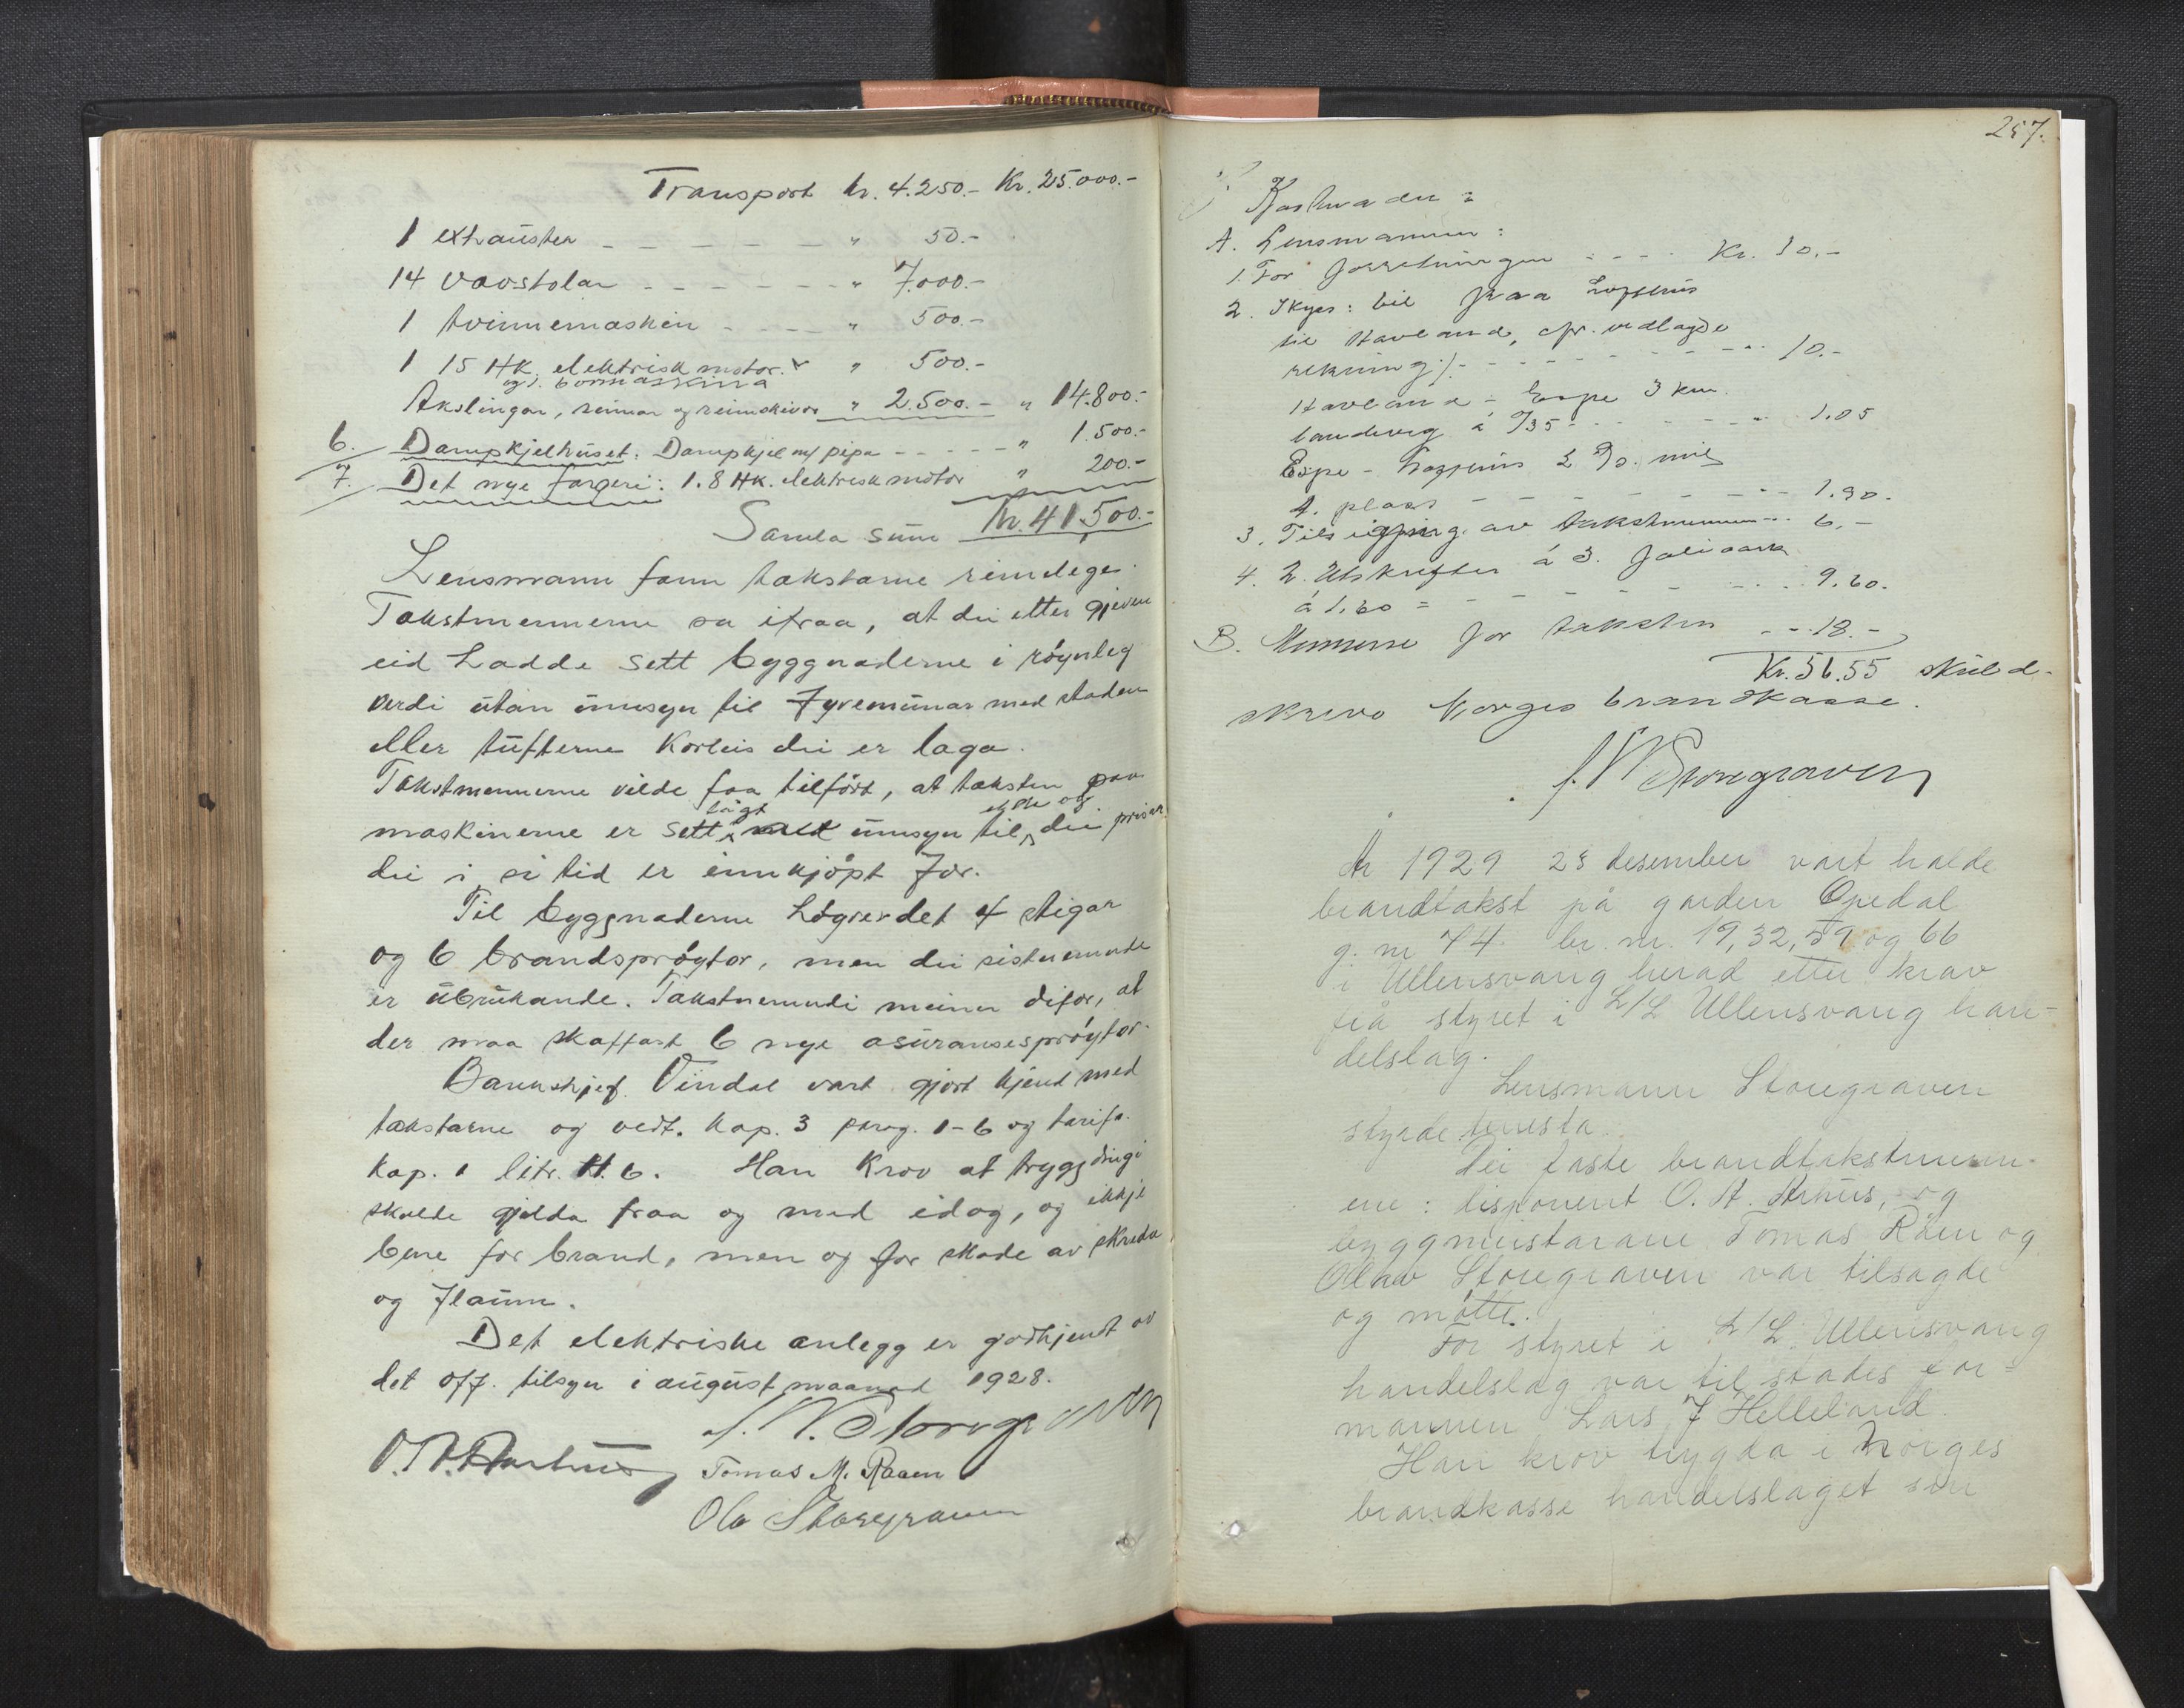 Transport kr. 4.250.- Kr. 25.000.-
1 exhauster - - - - - - " 50.-
14 vevstolar - - - - - - " 7.000.-
1 tvinnemaskin - - - - " 500.-
1 15 HK. elektrisk motor. " 500.-
og 1. bormaskina
Akslingar, reimar og reimskivor " 2.500.- " 14.800.-
6. Dampkjelhuset: Dampkjel m/ pipa - - - - - " 1.500.-
7. Det nye fargeri: 1. 8 HK. elektrisk motor " 200.-
Samla sum Kr. 41.500.-
Lensmann fann takstarne rimelege.
Takstmennerne sa ifraa, at dei etter gjeven
eid hadde sett byggnaderne i røynleg
verdi utan umsyn til fyremunar med staden
eller tufterne korleis dei er laga.
Takstmennerne vilde faa tilført, at taksten paa
lågt etter og
maskinerne er sett med umsyn til dei prisar
dei i si tid er innkjøpt for.
Til byggnaderne høyrer det 4 stigar
og 6 brandsprøytor, men dei sistnemnde
er ubrukande. Takstnemndi meiner difor, at
der maa skaffast 6 nye asuransesprøytor.
Bankskjef Vindal vart gjort kjend med
takstarne og vedt. kap. 3 parag. 1-6 og tarifs.
kap. 1 litr. H. 6. Han krov at tryggdingi
skulde gjelda fraa og med idag, og ikkje
bere for brand, men og for skade av skreda
og flaum.
Det elektriske anlegg er godkjendt av
det off. tilsyn i august maanad 1928.
J. W. Storegraven
Tomas M. Raaen
Ola Storegraven
257.
Kostnader:
A. Lensmannen:
1. For forretningen - - - - Kr. 10.-
2. Skyss: bil fraa Lofthus
til Havland, cfr. vedlagde
rekning ./. - - - - - - - - - 10.-
Havland - Espe 3 km.
landeveg á 0/35 - - - - - - - 1.05
Espe - Lofthus 2 7/10. mil
1. plass - - - - - - - - 1.90.
3. Tilsigjing av takstmennene - 6.-
4. 2. Utskrifter á 3. folioark
á 1.60 = - - - - - - - 9.60.
B. Mennerne for taksten - - - 18.-
Kr. 56.55 skuld-
skreve Norges brandkasse.
J. W. Storegraven
År 1929 28 desember vart halde
brandtakst på garden Opedal
g. nr 74. br. nr. 19, 32, 59 og 66
i Ullensvang herad etter krav
frå styret i L/L Ullensvang han-
delslag.
Lensmann Storegraven
styrde tenesta.
Dei faste brandtakstmenn-
ene: disponent O. A. Aarhus, og
byggmeistarane Tomas Råen og
Olav Storegraven var tilsagde
og møtte.
For styret i L/L Ullensvang
handelslag var til stades for-
mannen Lars J Helleland.
Han krov trygda i Norges
brandkasse handelslaget sin